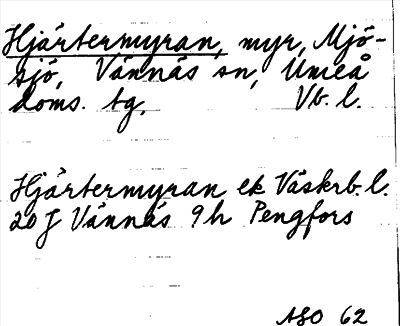 Hjärtermyran, myr, Mjö-
sjö, Vännäs sn, Umeå
doms. tg, Vb. l.
Hjärtermyran ek Väskrb. l.
20 J Vännäs 9h Pengfors
ASO 62